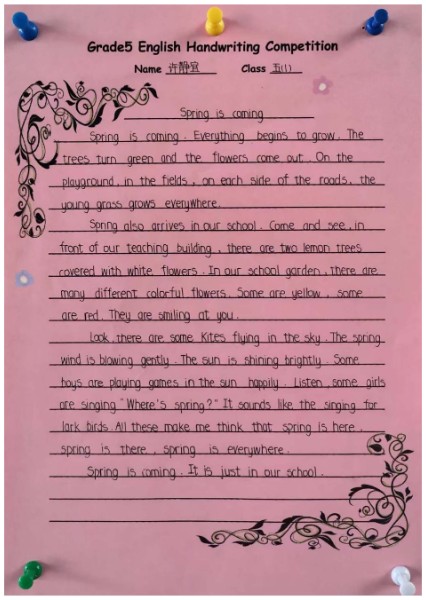 Grade5 English Handwriting Competition
Name 许静宜 Class 五(1)
Spring is coming
Spring is coming. Everything begins to grow. The
trees turn green and the flowers come out. On the
playground, in the fields, on each side of the roads, the
young grass grows everywhere.
Spring also arrives in our school. Come and see, in
front of our teaching building, there are two lemon trees
covered with white flowers. In our school garden, there are
many different colorful flowers. Some are yellow, some
are red. They are smiling at you.
Look, there are some Kites flying in the sky. The spring
wind is blowing gently. The sun is shining brightly. Some
boys are playing games in the sun happily. Listen, some girls
are singing "Where's spring?" It sounds like the singing for
lark birds. All these make me think that spring is here,
spring is there, spring is everywhere.
Spring is coming. It is just in our school.